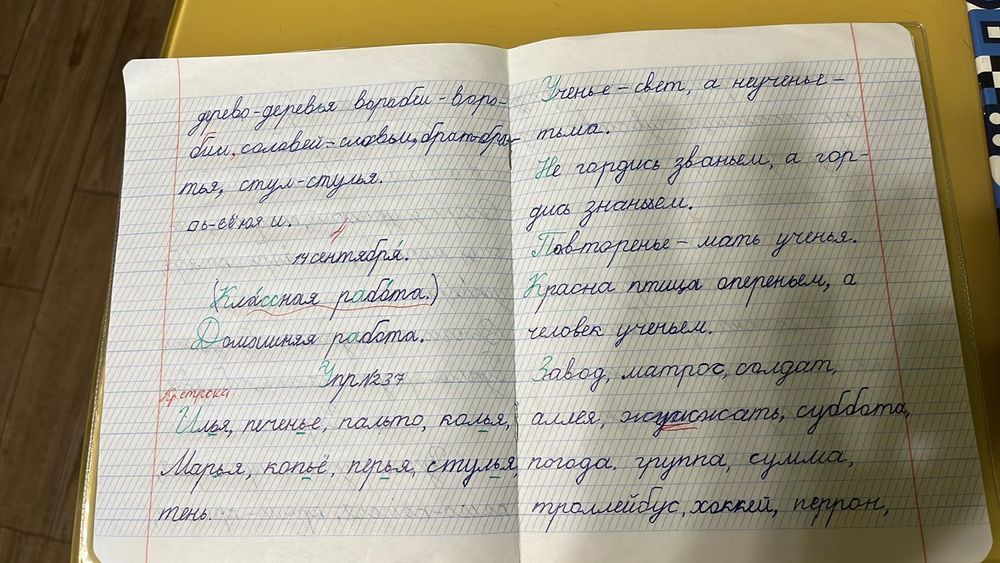 дерево-деревья воробей-воро-
бьи, соловей-словьи, брат-бра-
тья, стул-стулья.
14 сентября.
(Классная работа.)
Домашняя работа.
Упр. №237
Кр. строка
Илья, печенье, пальто, колья,
Марья, копьё, перья, стулья,
тень.
Ученье-свет, а неученье-
тьма.
Не гордись званьем, а гор-
дись знаньем.
Повторенье-мать ученья.
Красна птица опереньем, а
человек ученьем.
Завод, матрос, солдат,
аллея, суббота,
погода. группа, сумма,
троллейбус, хоккей, перрон,